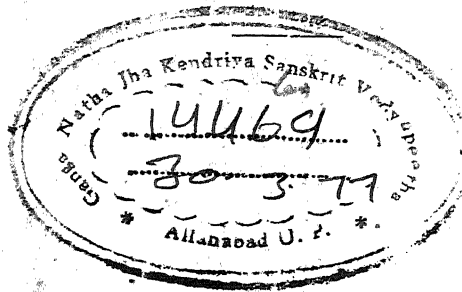 Ganga Natha Jha Kendriya Sanskrit Vedyapeetha
14469
30 3. 77
* Allahabad U. P. *